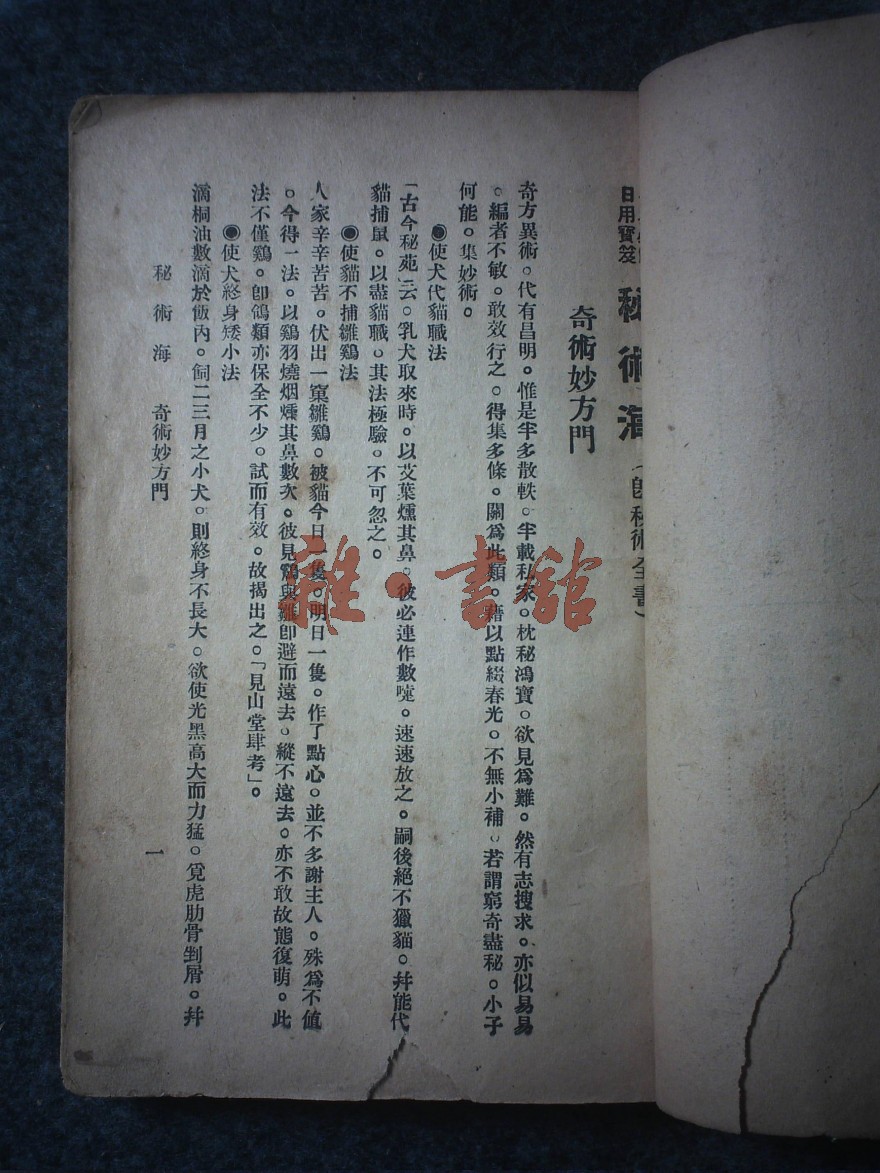 日用寶笈
秘術海（卽秘術全書）
奇術妙方門
奇方異術。代有昌明。惟是半多散軼。半載私家。枕秘鴻寶。欲見爲難。然有志搜求。亦似易易
。編者不敏。敢效行之。得集多條。關爲此類。藉以點綴春光。不無小補。若謂窮奇盡秘。小子
何能。集妙術。
◉使犬代貓職法
「古今秘苑」云。乳犬取來時。以艾葉燻其鼻。彼必連作數嚏。速速放之。嗣後絕不獵貓。幷能代
貓捕鼠。以盡貓職。其法極驗。不可忽之。
◉使貓不捕雛鷄法
人家辛辛苦苦。伏出一窠雛鷄。被貓今日一隻。明日一隻。作了點心。並不多謝主人。殊爲不値
。今得一法。以鷄羽燒烟燻其鼻數次。彼見鷄與雛卽避而遠去。縱不遠去。亦不敢故態復萌。此
法不僅鷄。卽鴿類亦保全不少。試而有效。故揭出之。「見山堂肆考」。
◉使犬終身矮小法
滴桐油數滴於飯內。飼二三月之小犬。則終身不長大。欲使光黑高大而力猛。覓虎肋骨剉屑。幷
秘術海 奇術妙方門
一
雜·書館